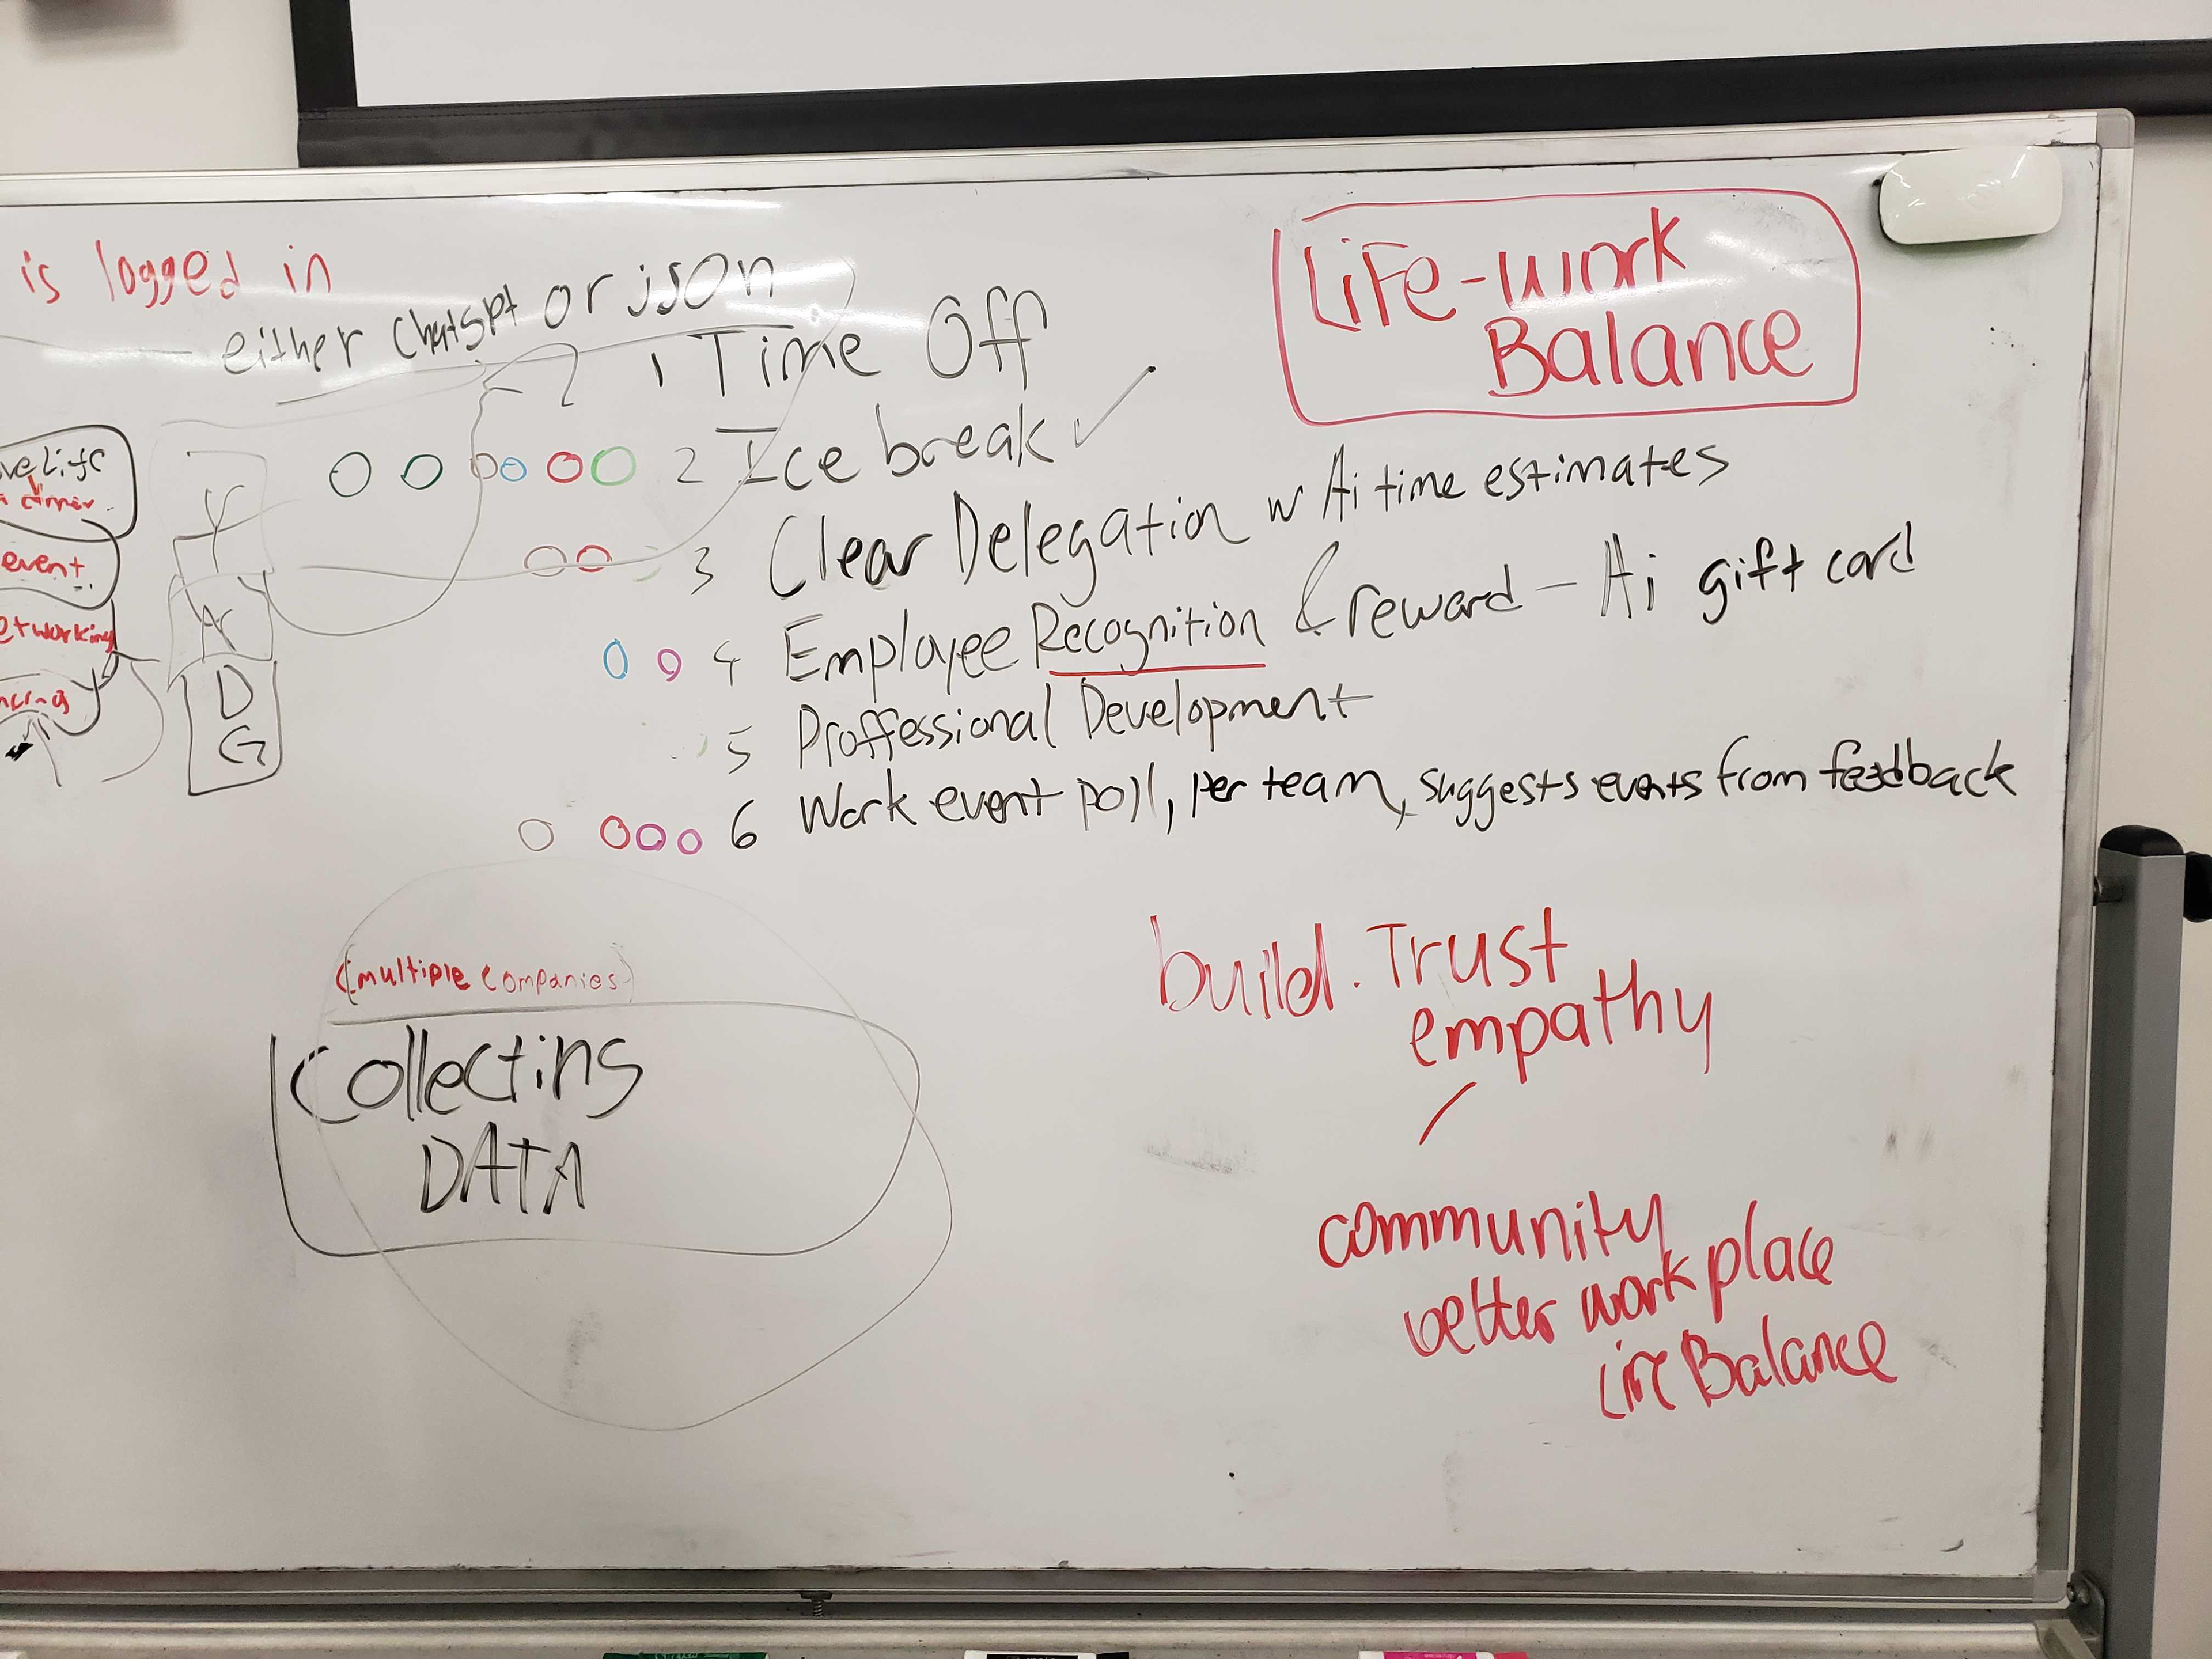 is logged in
either Chatgpt or json
LiFe-work
Balance
1 Time Off
2 Ice break
3 Clear Delegation w Ai time estimates
4 Employee Recognition & reward - Ai gift card
5 Proffessional Development
6 Work event poll, per team, suggests events from feedback
event
D
G
(multiple companies)
Collecting
DATA
build. Trust
empathy
community
better work place
Balance